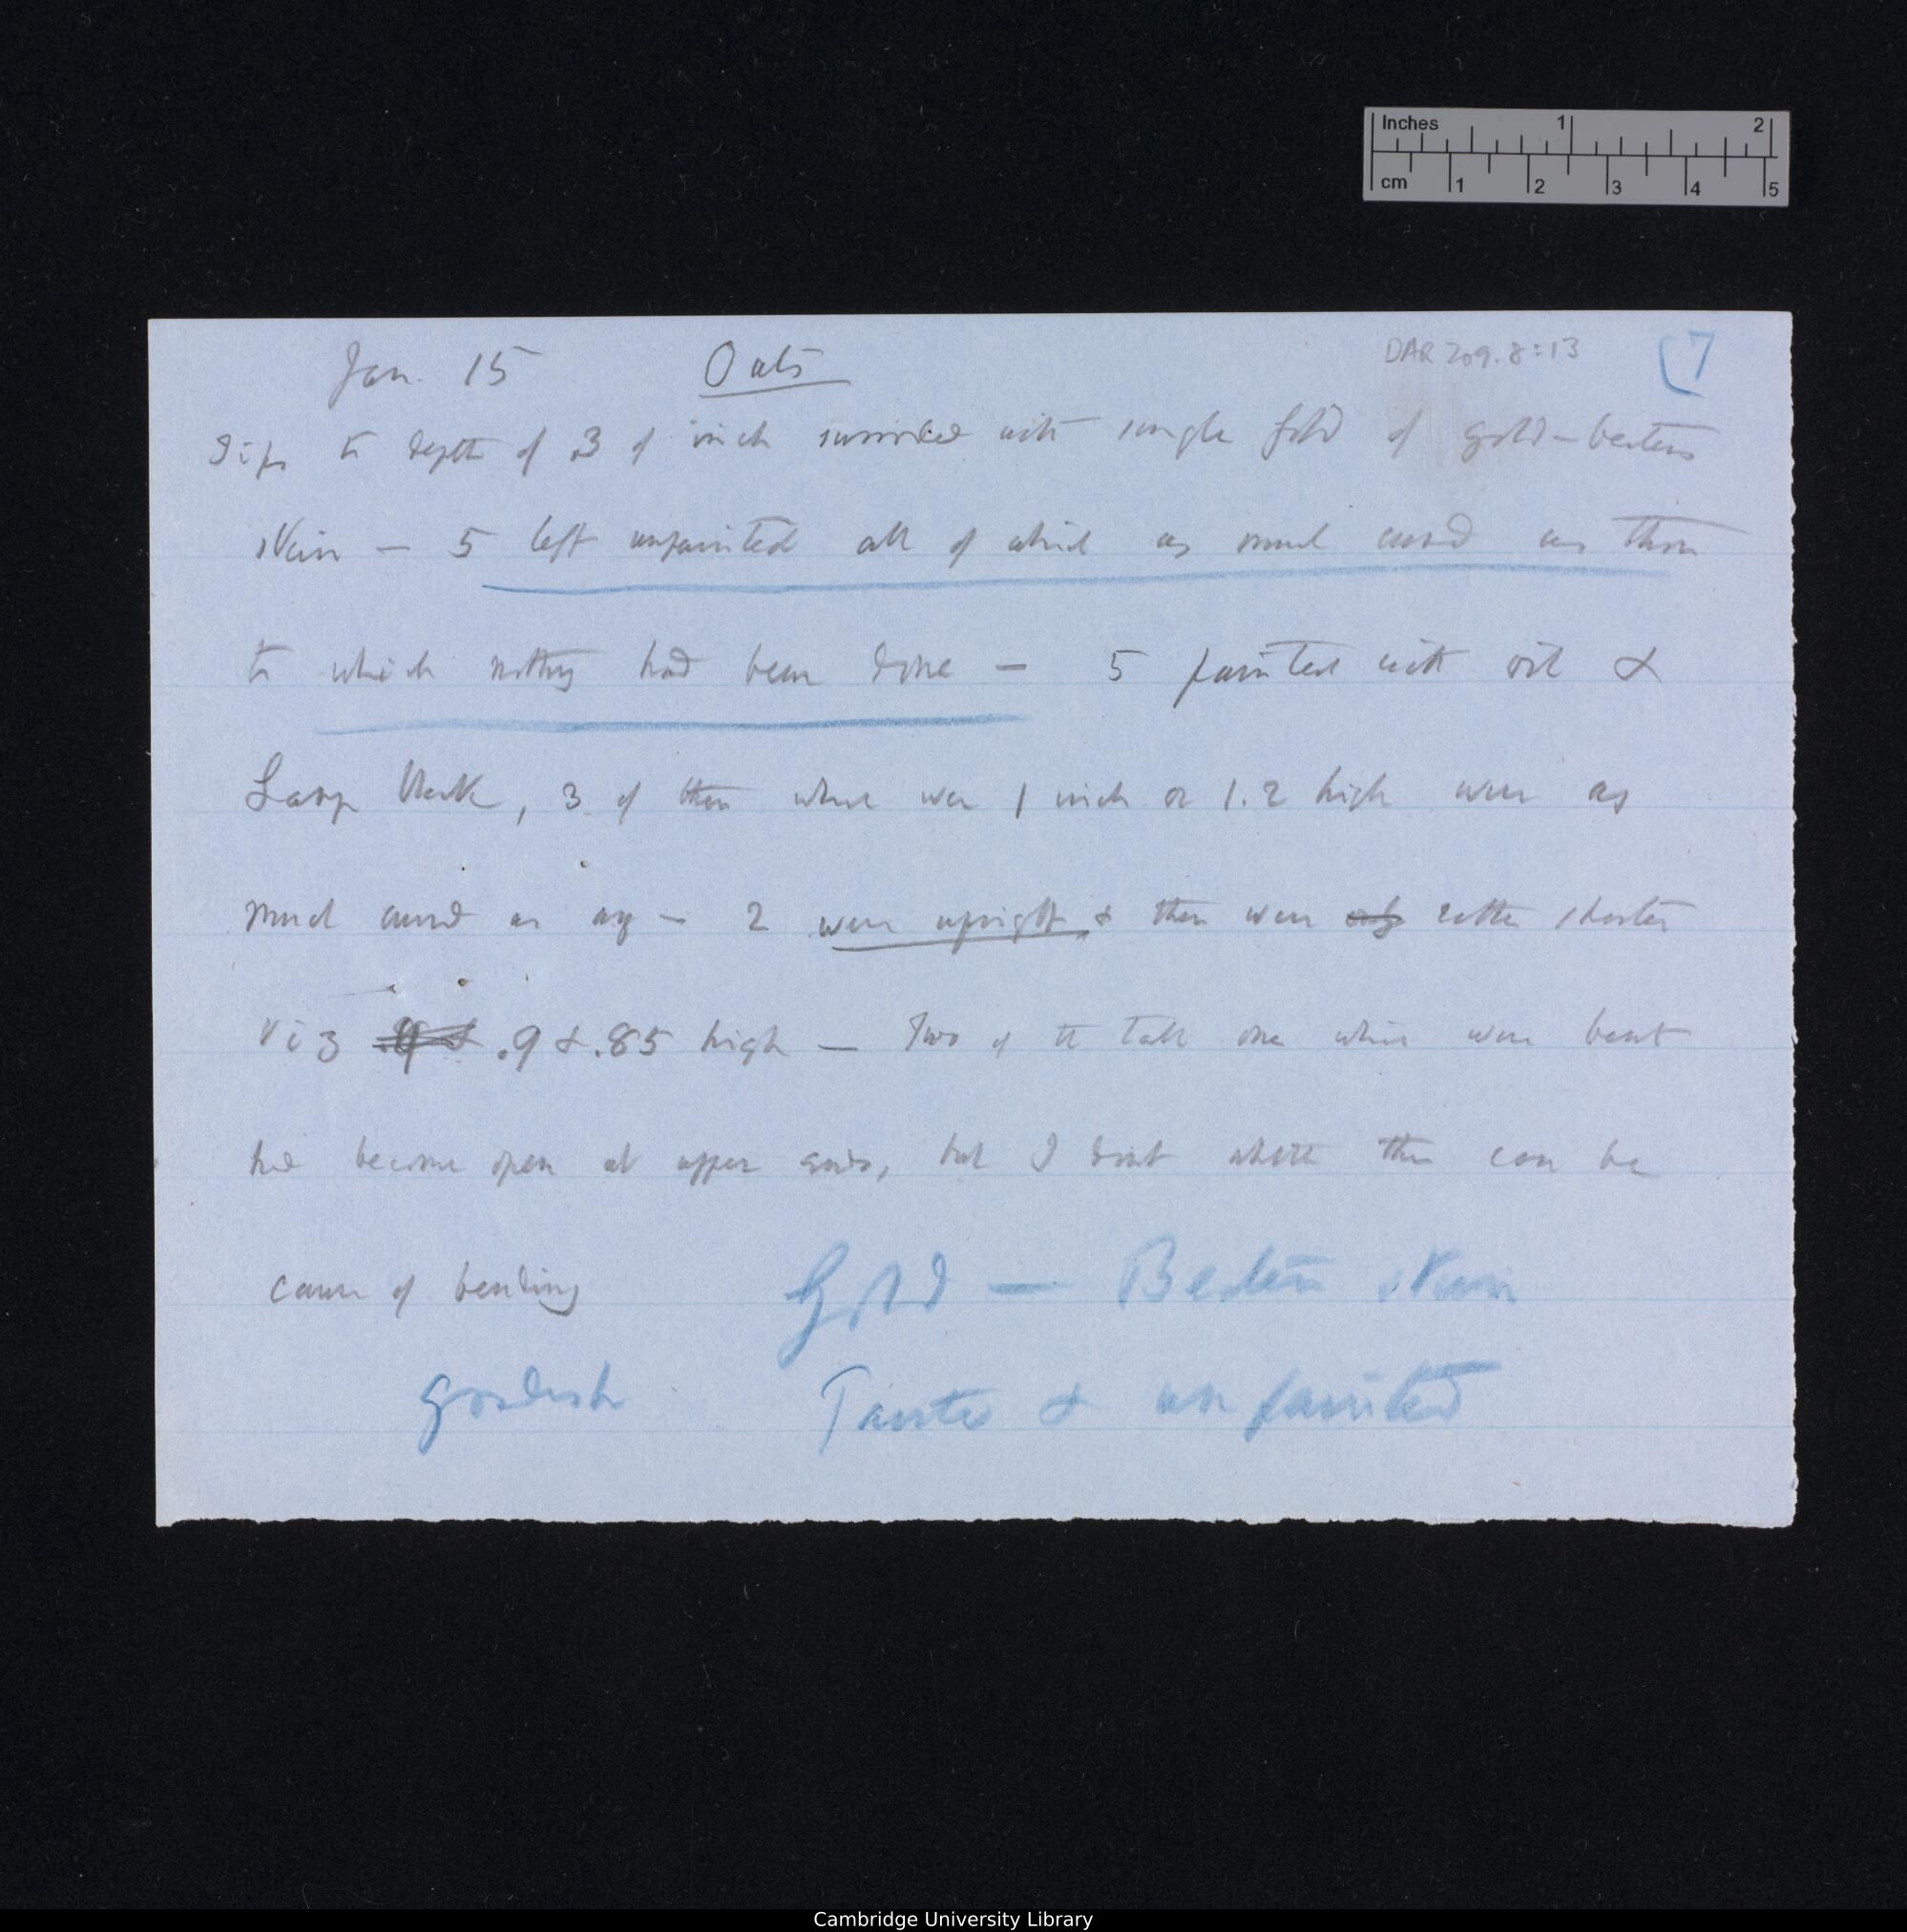 Inches 1 2
cm 1 2 3 4 5
Jan. 15 Oats DAR 209.8:13 (7
Tips to depth of .3 of inch surrounded with single fold of gold-beaters
skin — 5 left unpainted all of which as much curved as those
to which nothing had been done — 5 painted with oil &
Lamp black, 3 of them which were 1 inch or 1.2 high were as
much curved as any — 2 were upright & these were only rather shorter
viz .9 & .85 high — Two of the tall one which were bent
had become open at upper ends, but I doubt whether this can be
cause of bending Gold — Beaters skin
goodish Painted & unpainted
Cambridge University Library